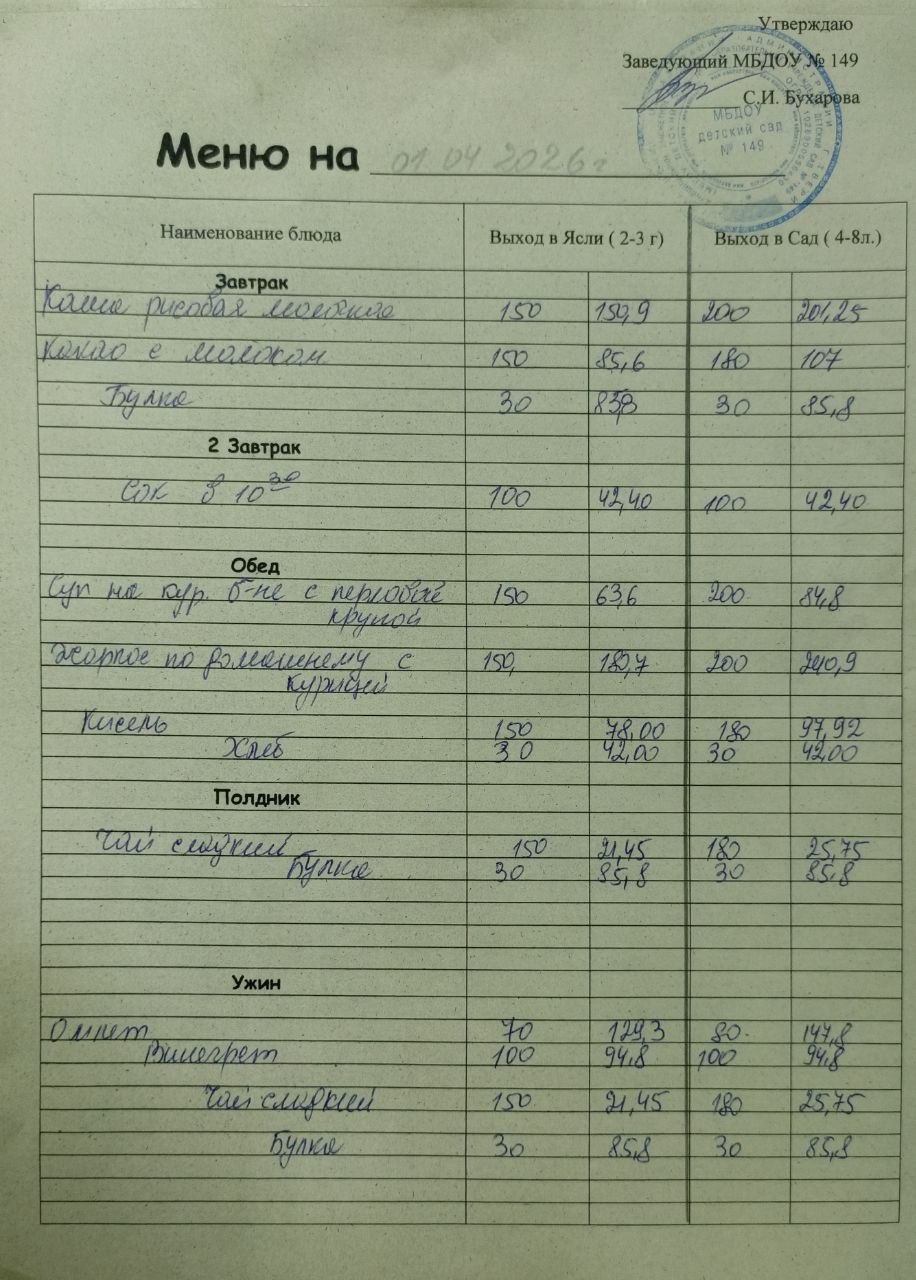 Утверждаю
Заведующий МБДОУ № 149
С.И. Бухарова
МБДОУ
детский сад
№ 149
Меню на 01 04 2026 г
Наименование блюда Выход в Ясли ( 2-3 г) Выход в Сад ( 4-8л.)
Завтрак
Каша рисовая молочная 150 150,9 200 201,25
Какао с молоком 150 85,6 180 107
Булка 30 85,8 30 85,8
2 Завтрак
Сок в 10 30 100 42,40 100 42,40
Обед
Суп на кур. б-не с перловой 150 63,6 200 84,8
крупой
Жаркое по домашнему с 150, 180,7 200 240,9
курицей
Кисель 150 78,00 180 97,92
Хлеб 30 42,00 30 42,00
Полдник
Чай сладкий 150 21,45 180 25,75
Булка 30 85,8 30 85,8
Ужин
Омлет 70 129,3 80 147,8
Винегрет 100 94,8 100 94,8
Чай сладкий 150 21,45 180 25,75
Булка 30 85,8 30 85,8